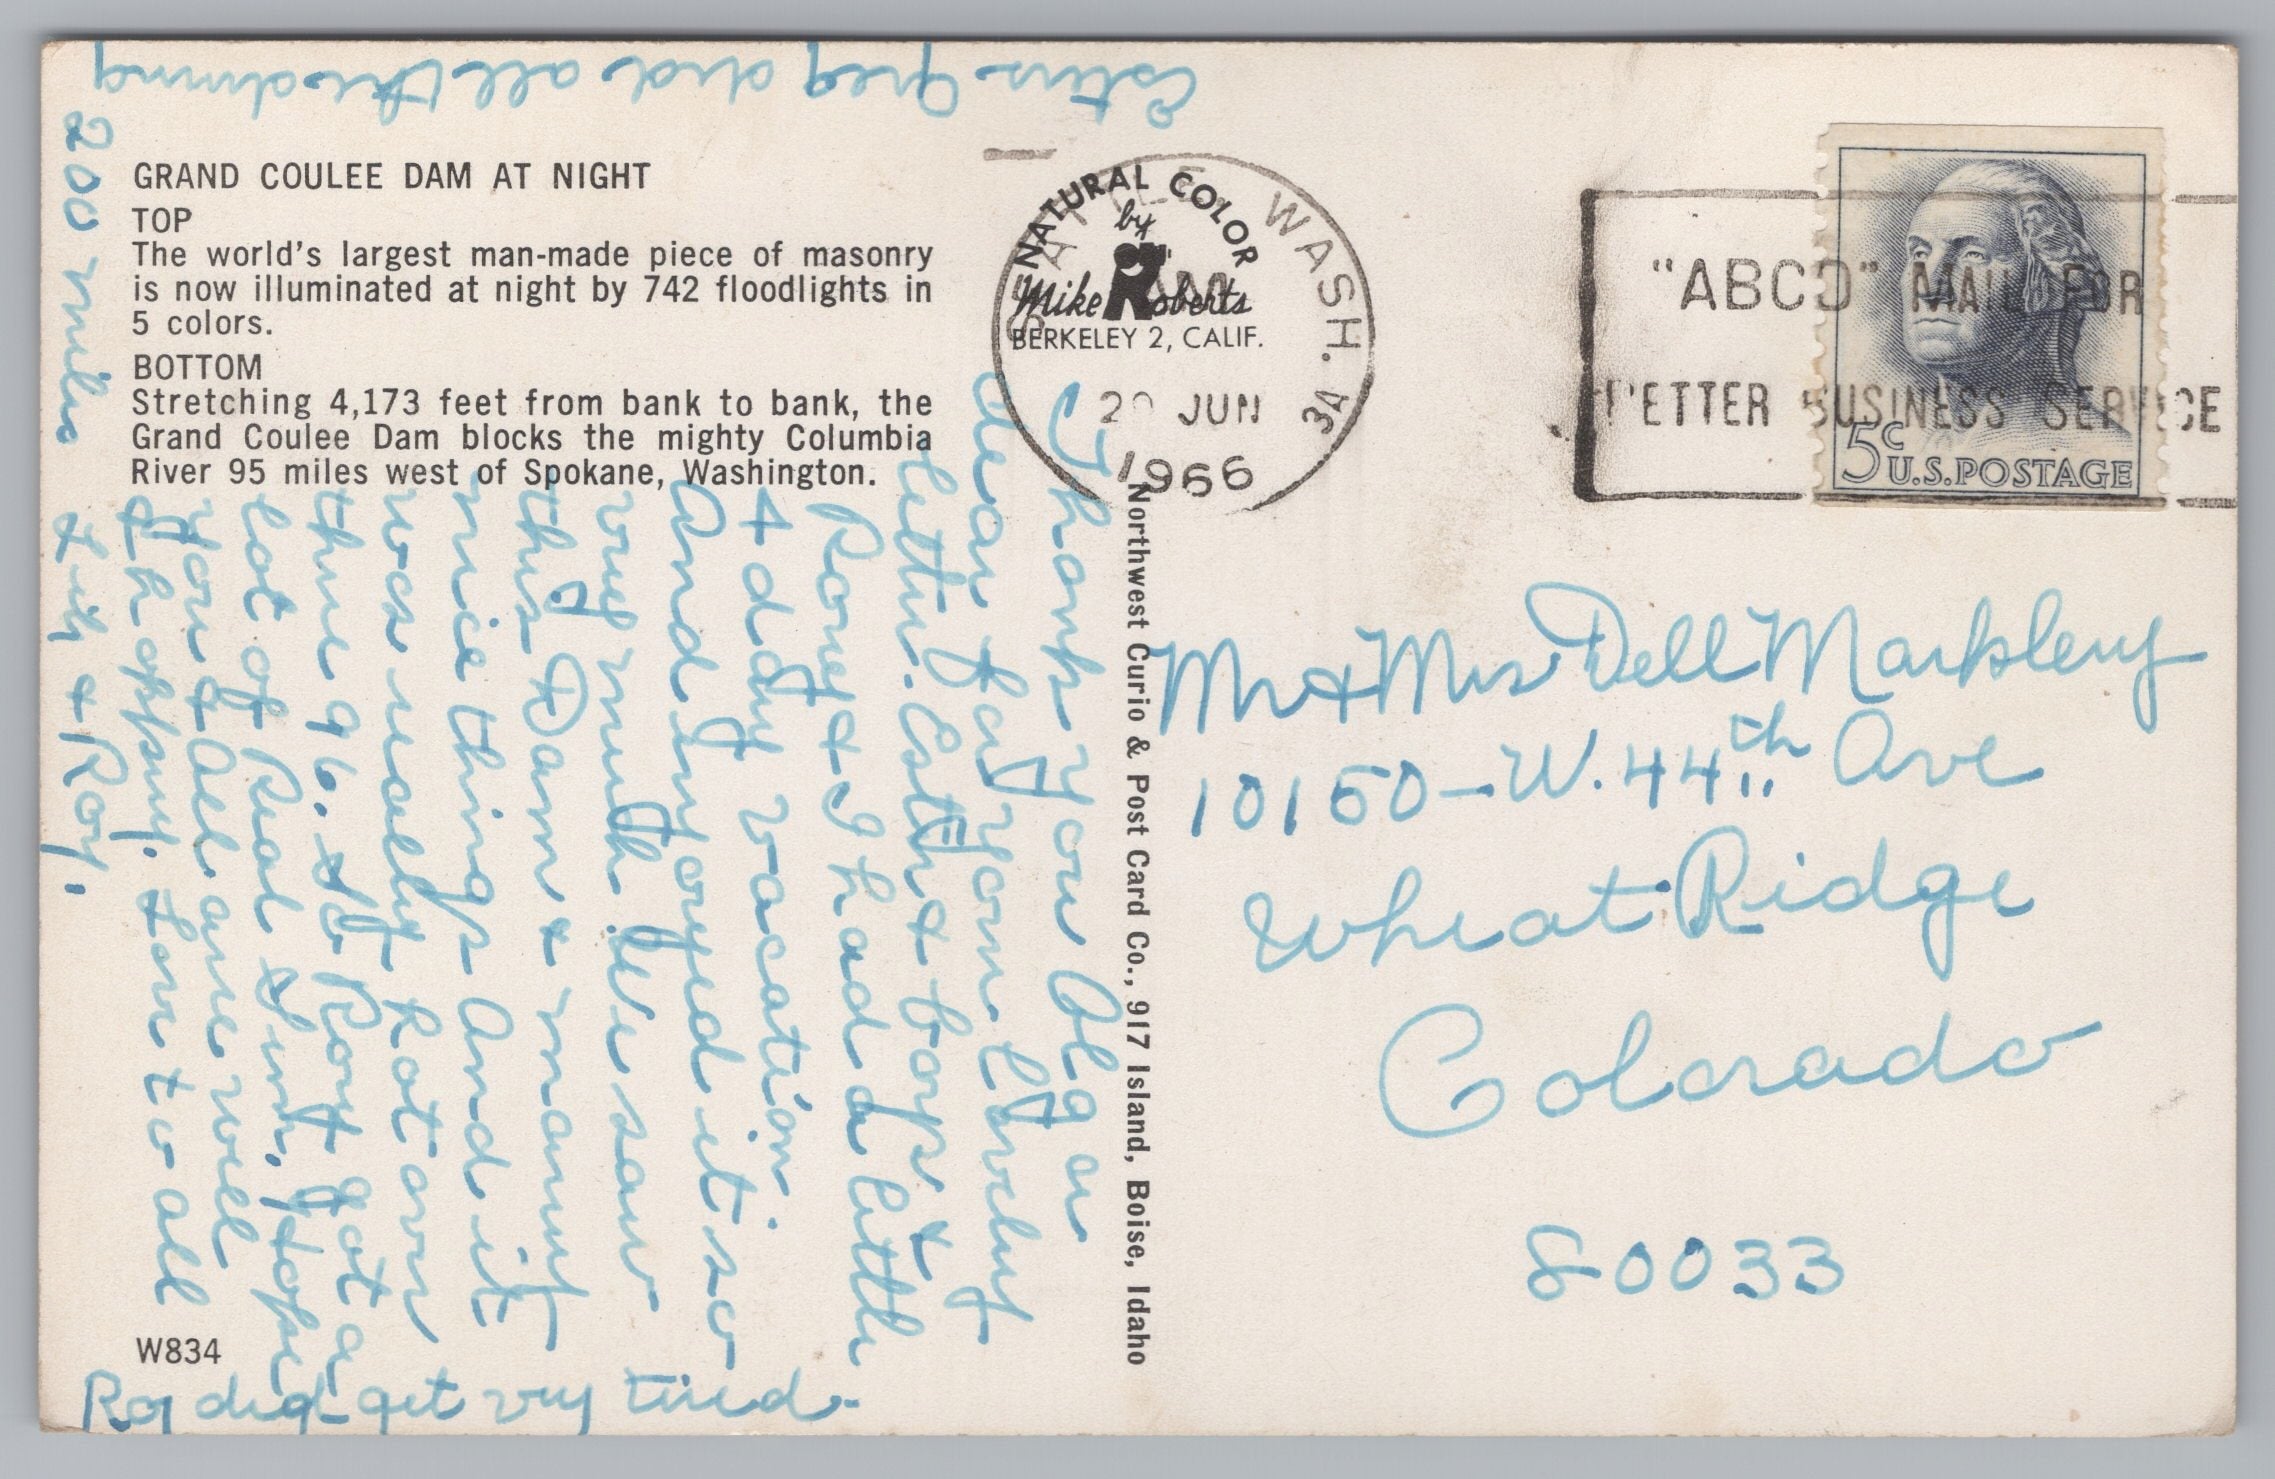 GRAND COULEE DAM AT NIGHT
TOP
The world's largest man-made piece of masonry
is now illuminated at night by 742 floodlights in
5 colors.
BOTTOM
Stretching 4,173 feet from bank to bank, the
Grand Coulee Dam blocks the mighty Columbia
River 95 miles west of Spokane, Washington.
W834
NATURAL COLOR
by
Mike Roberts
BERKELEY 2, CALIF.
WASH.
AM
JUN
3A
1966
"ABCD" MAIL FOR
BUSINESS SERVICE
5c U.S.POSTAGE
Northwest Curio & Post Card Co., 917 Island, Boise, Idaho
Mr & Mrs Dell Markley
10150-W. 44th Ave
Wheat Ridge
Colorado
80033
Thank you Olga
dear for your lovely
letter. Esther & boys &
Roy & I had a little
4 day vacation.
And enjoyed it so
very much. We saw
this Dam & many
nice things And it
was really hot over
there 96. So Roy got a
lot of Real Sun. Hope
you & All are well
& happy. Love to all
Lily & Roy.
200 miles
Roy did get very tired.
Greg did all the driving